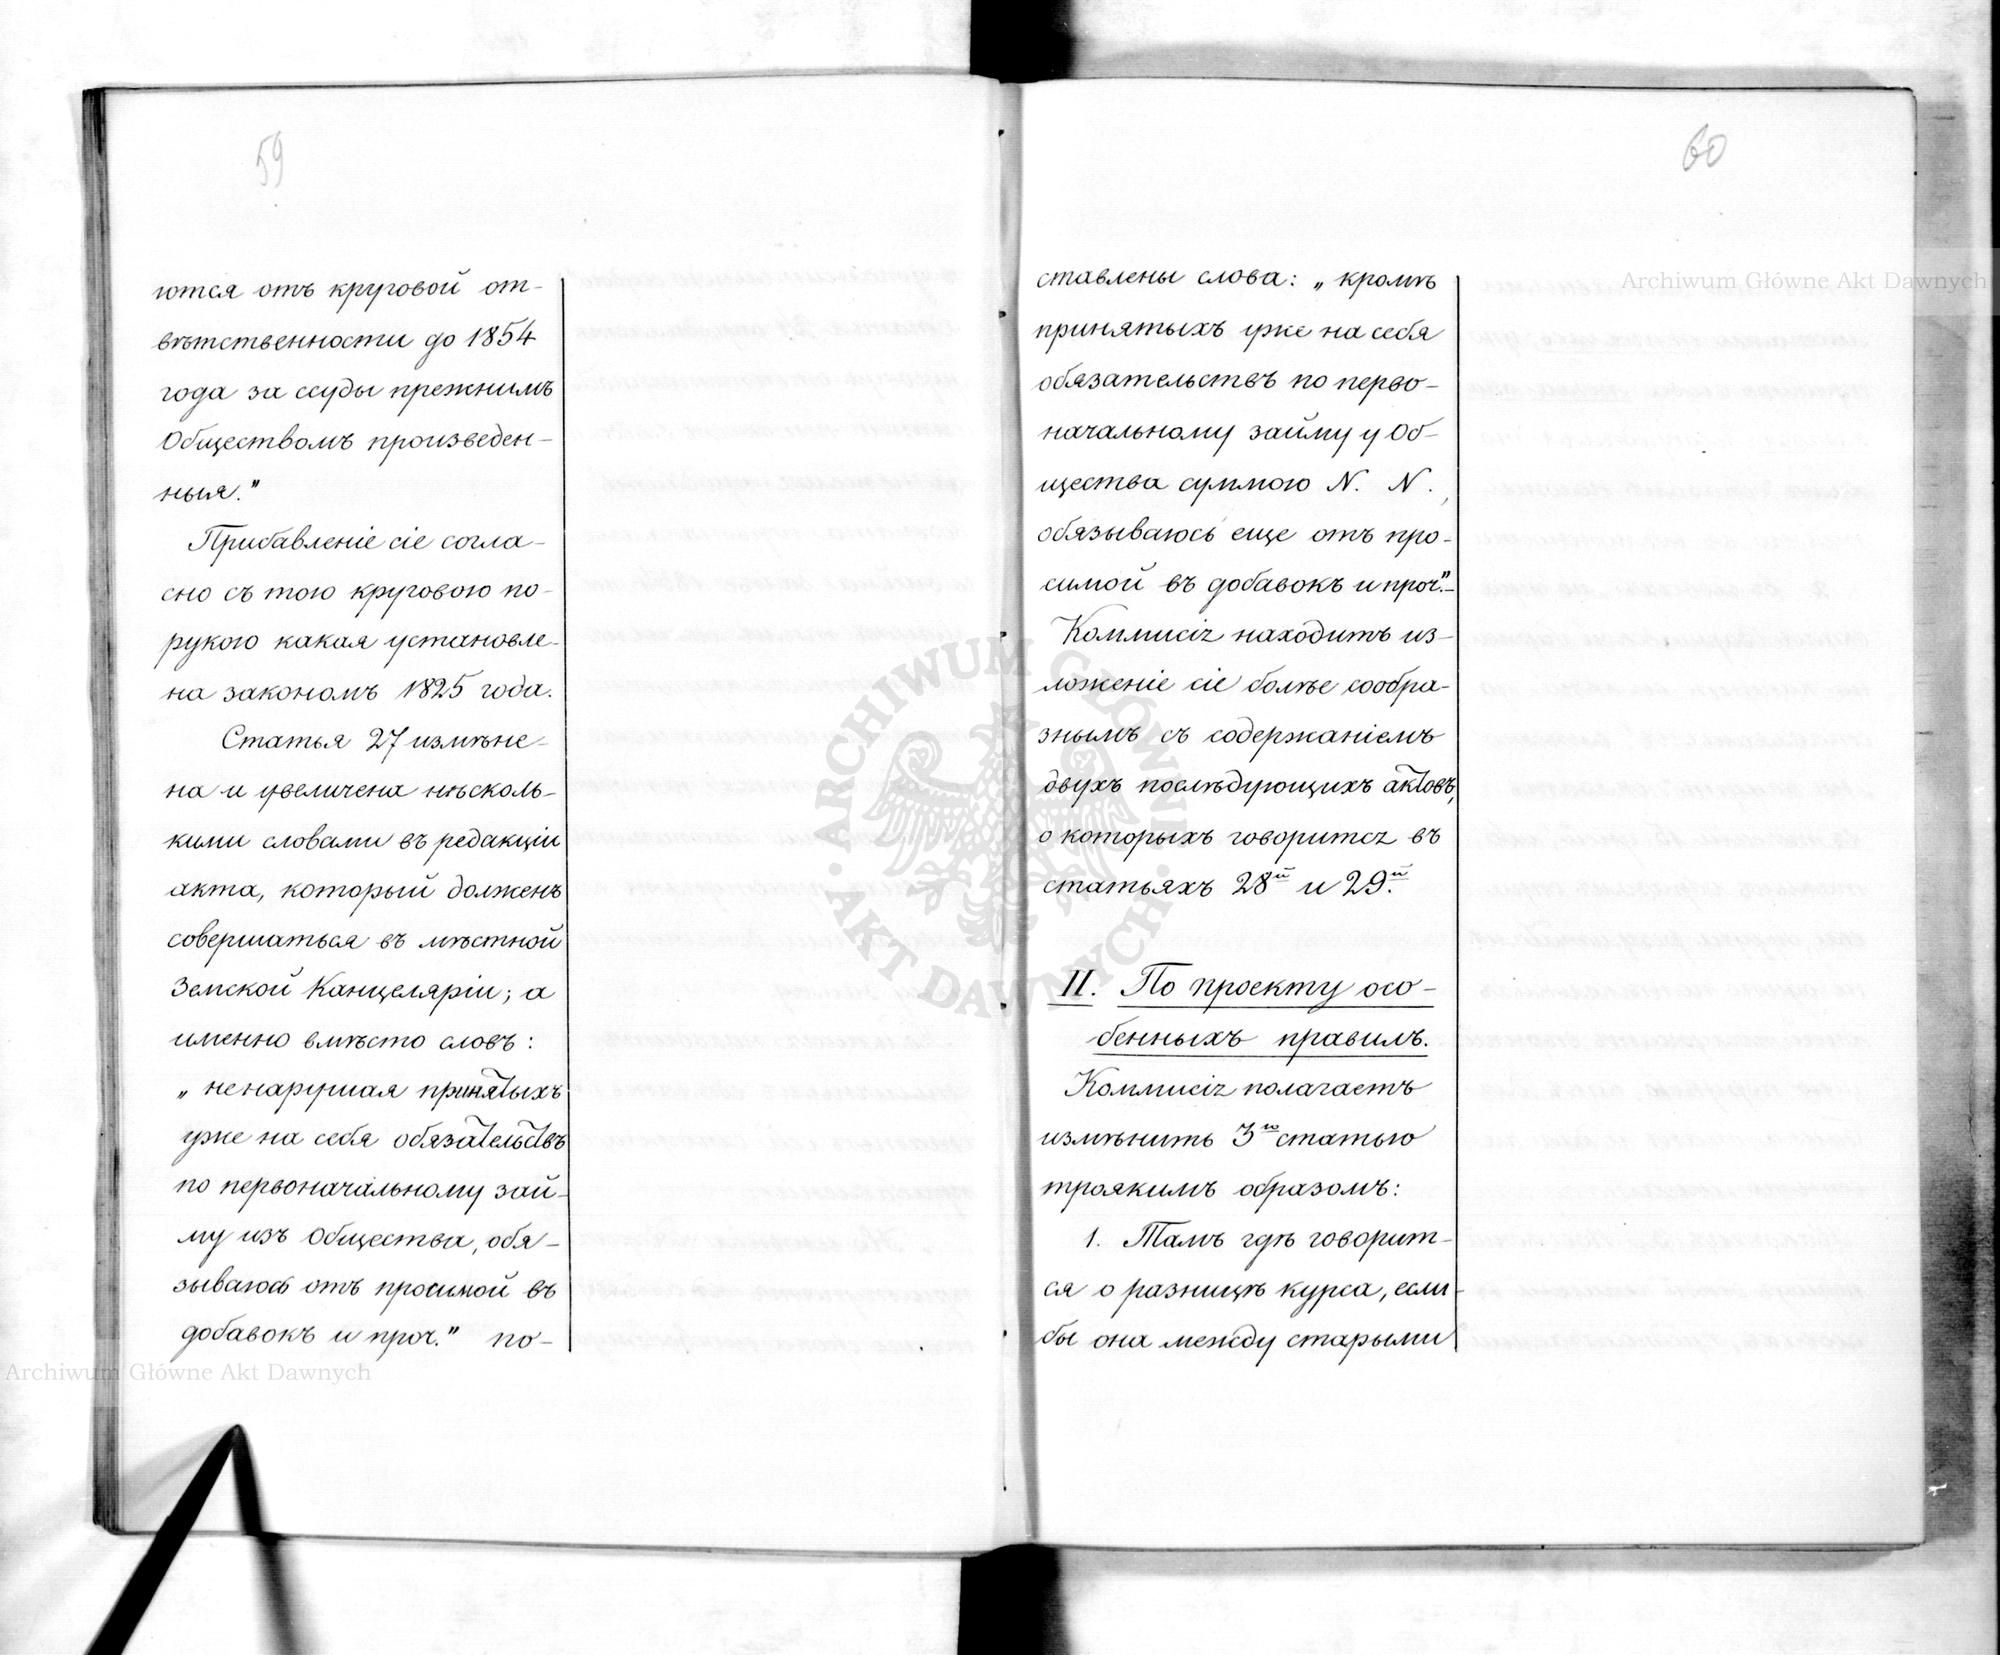 59
ются отъ круговой от-
вѣтственности до 1854
года за ссуды прежнимъ
Обществомъ произведен-
ныя."
Прибавленіе сіе согла-
сно съ тою круговою по-
рукою какая установле-
на закономъ 1825 года.
Статья 27 измѣне-
на и увеличена нѣсколь-
кими словами въ редакціи
акта, который долженъ
совершаться въ мѣстной
Земской Канцеляріи; а
именно вмѣсто словъ:
„ненарушая принятыхъ
уже на себя обязательствъ
по первоначальному зай-
му изъ Общества, обя-
зываюсь отъ просимой въ
добавокъ и проч." по-
60
ставлены слова: „кромѣ
принятыхъ уже на себя
обязательствъ по перво-
начальному займу у Об-
щества суммою N. N.,
обязываюсь еще отъ про-
симой въ добавокъ и проч."-
Коммисія находитъ из-
ложеніе сіе болѣе сообра-
знымъ съ содержаніемъ
двухъ послѣдующихъ актовъ,
о которыхъ говорится въ
статьяхъ 28й и 29й.
II. По проекту осо-
бенныхъ правилъ.
Коммисія полагаетъ
измѣнить 3ю статью
троякимъ образомъ:
1. Тамъ гдѣ говорит-
ся о разницѣ курса, если-
бы она между старыми
Archiwum Główne Akt Dawnych
Archiwum Główne Akt Dawnych
ARCHIWUM GŁÓWNE · AKT DAWNYCH ·